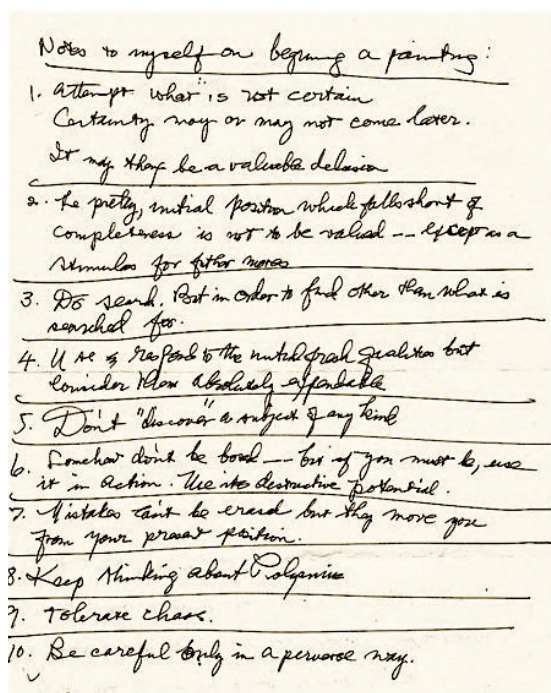 Notes to myself on begining a painting:
1. attempt what is not certain
Certainty may or may not come later.
It may then be a valuable delusion
2. The pretty, initial position which falls short of
completeness is not to be valued -- except as a
stimulus for further moves
3. Do search. But in order to find other than what is
searched for.
4. Use & respond to the initial fresh qualities but
consider them absolutely expendable
5. Don't "discover" a subject of any kind
6. Somehow don't be bored -- but if you must be, use
it in action. Use its destructive potential.
7. Mistakes can't be erased but they move you
from your present position.
8. Keep thinking about
9. Tolerate chaos.
10. Be careful only in a perverse way.